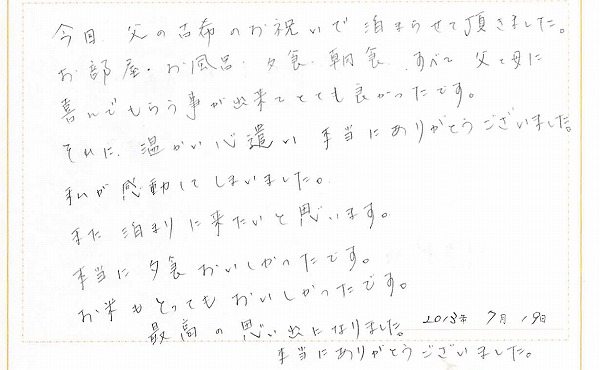 今日 父の古希のお祝いで 泊まらせて頂きました。
お部屋・お風呂・夕食・朝食 すべて 父と母に
喜んでもらう事が出来てとても良かったです。
それに、温かい心遣い 本当にありがとうございました
私が感動してしまいました。
また 泊まりに来たいと思います。
本当に 夕食おいしかったです。
お米もとってもおいしかったです。
最高の思い出になりました。 2013年 7月 19日
本当にありがとうございました。